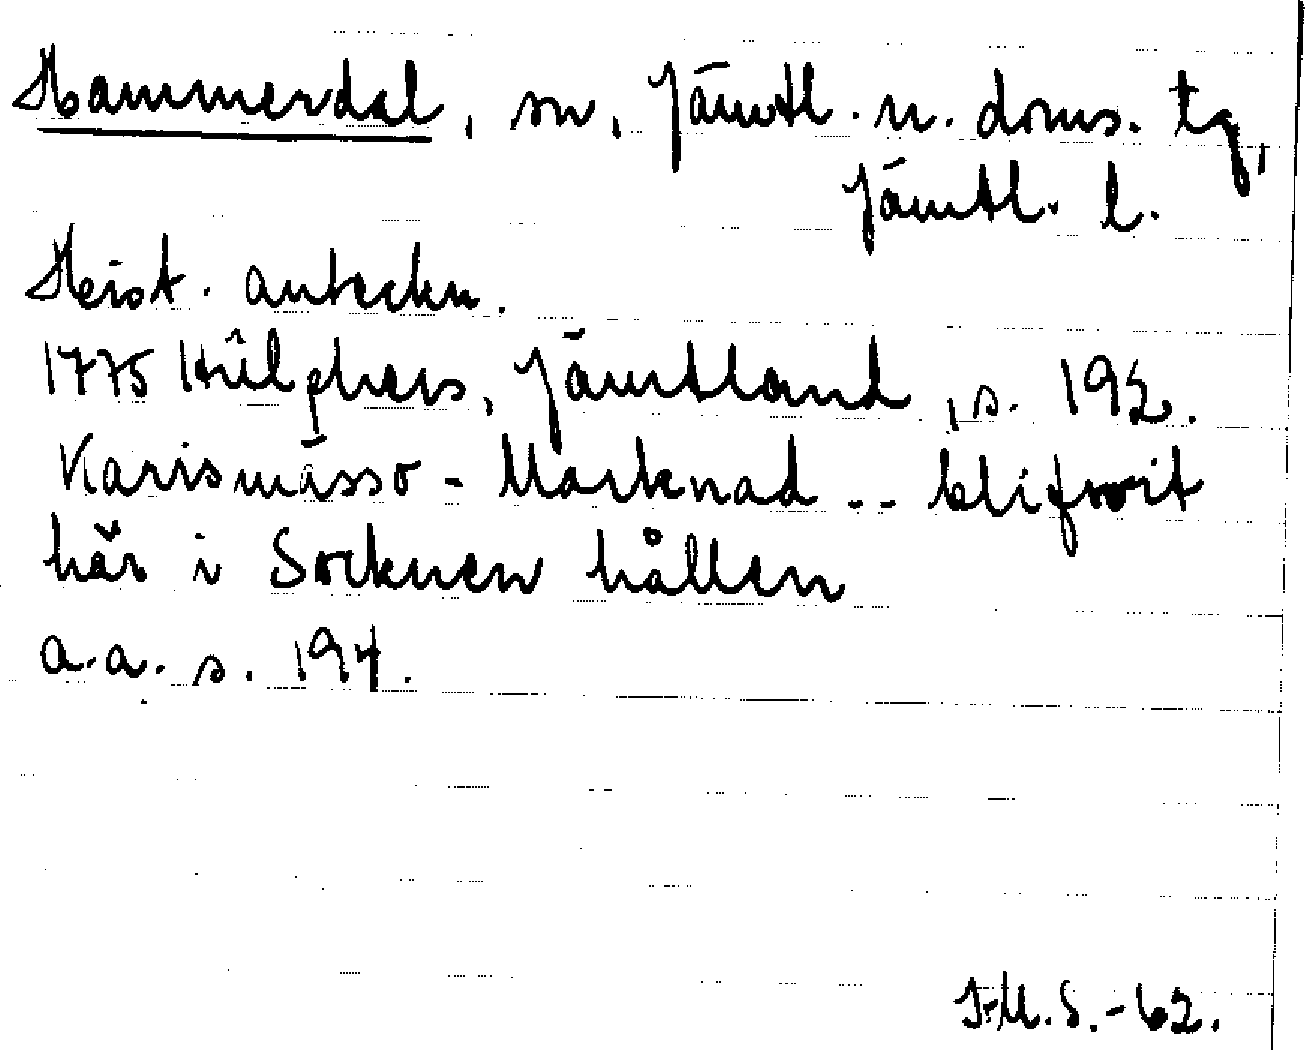 Hammerdal, sn, Jämtl. n. doms. tg,
Jämtl. l.
Hist. anteckn.
1775 Hülphers, Jämtland, s. 192.
Karismässo - Marknad -- blifwit
här i Socknen hållen
a.a. s. 194.
I.M.S.-62.